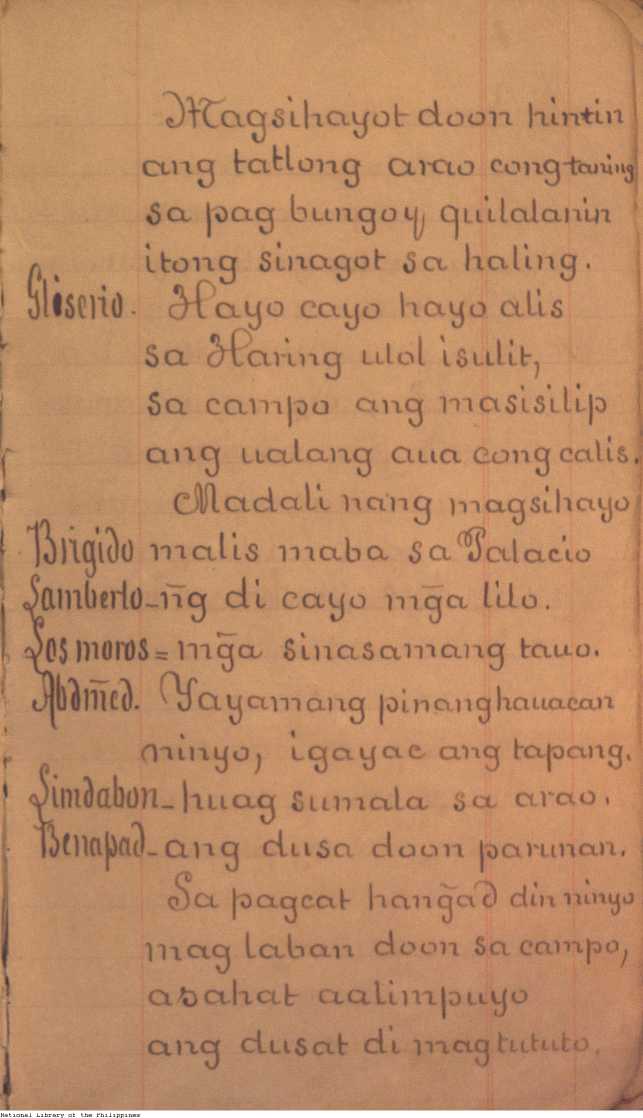 Magsihayot doon hintin
ang tatlong arao cong taning
sa pag bungoy, quilalanin
itong sinagot sa haling.
Gliserio. Hayo cayo hayo alis
sa Haring ulol isulit,
sa campo ang masisilip
ang ualang aua cong calis.
Madali nang magsihayo
Brigido malis maba sa Palacio
Lamberto_ñg di cayo mg̃a lilo.
Los moros = mg̃a sinasamang tauo.
Abdm̃ed. Yayamang pinanghauacan
ninyo, igayac ang tapang.
Limdabon_huag sumala sa arao.
Benapad_ang dusa doon parunan.
Sa pagcat hang̃ad din ninyo
mag laban doon sa campo,
asahat aalimpuyo
ang dusat di magtututo.
National Library of the Philippines